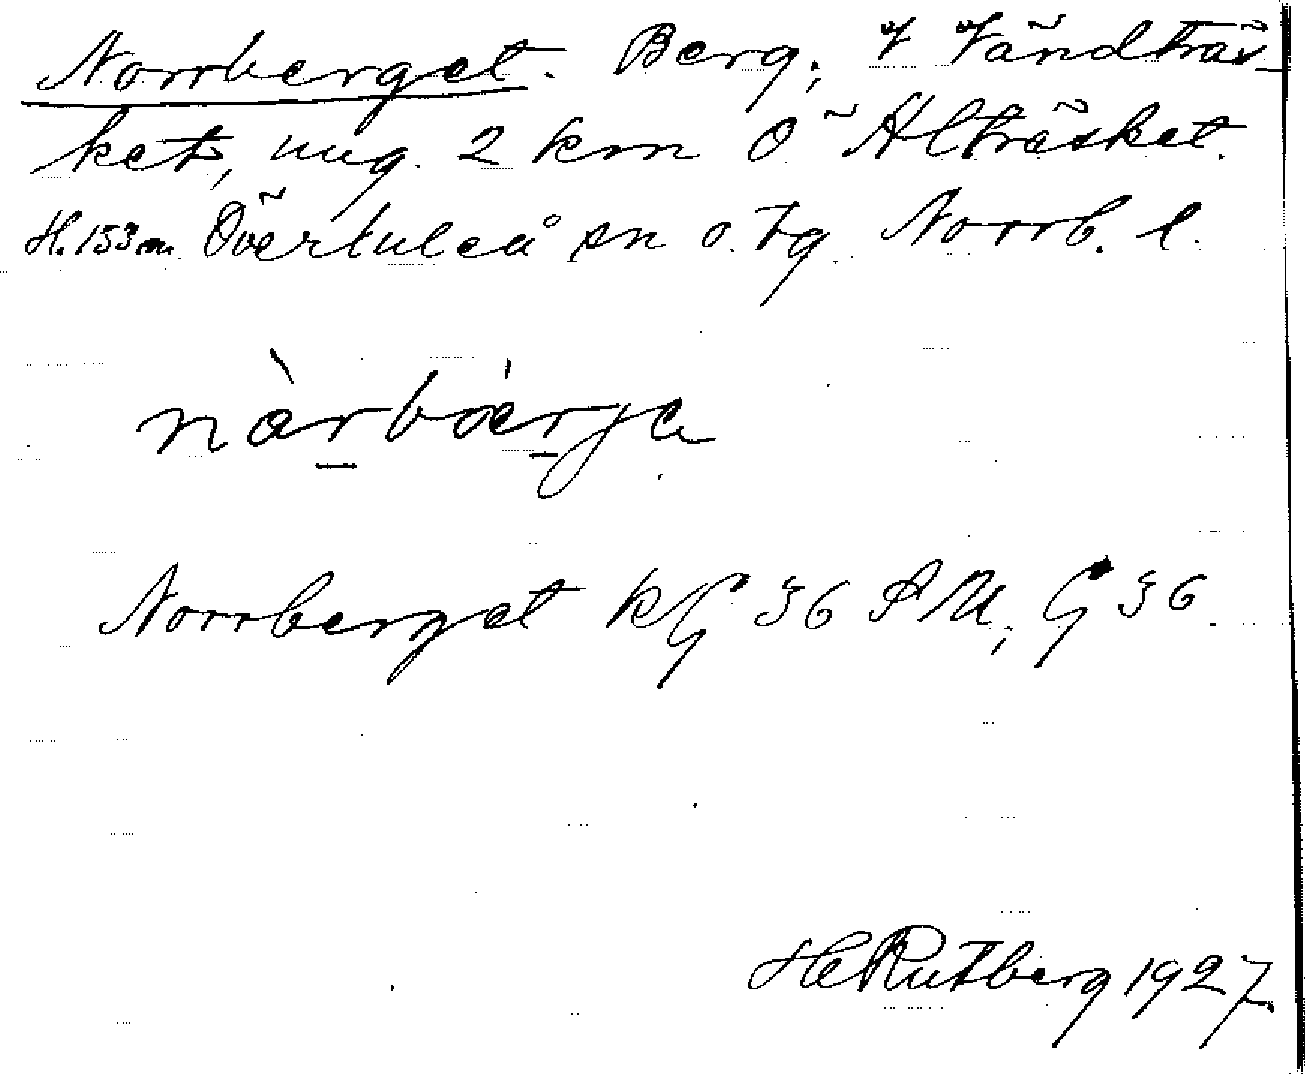 Norrberget. Berg; V Vändträs-
ket, ung. 2 km Ö Alträsket.
H. 153 m. Överluleå sn o. tg Norrb. l.
nàrbáerja
Norrberget kG 36 AM, G 36.
HERutberg 1927.